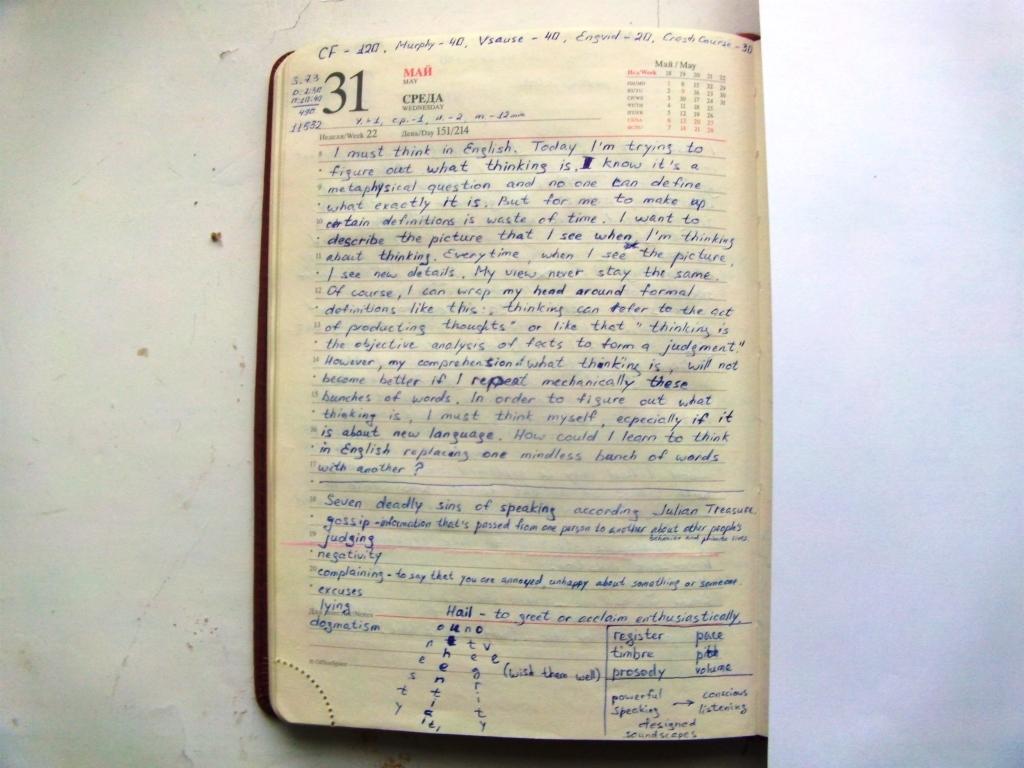 CF - 120, Murphy - 40, Vsause - 40, Engvid - 20, Crash Course - 30
31
МАЙ
MAY
СРЕДА
WEDNESDAY
Май / May
Нед/Week 18 19 20 21 22
ПН/MO 1 8 15 22 29
ВТ/TU 2 9 16 23 30
СР/WE 3 10 17 24 31
ЧТ/TH 4 11 18 25
ПТ/FR 5 12 19 26
СБ/SA 6 13 20 27
ВС/SU 7 14 21 28
11532
Неделя/Week 22 День/Day 151/214
8 I must think in English. Today I'm trying to
figure out what thinking is. I know it's a
9 metaphysical question and no one can define
what exactly it is. But for me to make up
10 certain definitions is waste of time. I want to
describe the picture that I see when I'm thinking
11 about thinking. Everytime, when I see the picture,
I see new details. My view never stay the same.
12 Of course, I can wrap my head around formal
definitions like this: "thinking can refer to the act
13 of producting thoughts" or like that "thinking is
the objective analysis of facts to form a judgment."
14 However, my comprehension of what thinking is, will not
become better if I repeat mechanically these
15 bunches of words. In order to figure out what
thinking is, I must think myself, ecpecially if it
16 is about new language. How could I learn to think
in English replacing one mindless bunch of words
17 with another?
18 Seven deadly sins of speaking according Julian Treasure
gossip - information that's passed from one person to another about other people's
behavior and private lives.
19 judging
negativity
20 complaining - to say that you are annoyed, unhappy about something or someone.
excuses
lying
dogmatism
Hail - to greet or acclaim enthusiastically
honesty
authenticity
integrity
love
(wish them well)
register pace
timbre pitch
prosody volume
powerful speaking → conscious listening
designed
soundscapes
© OfficeSpace